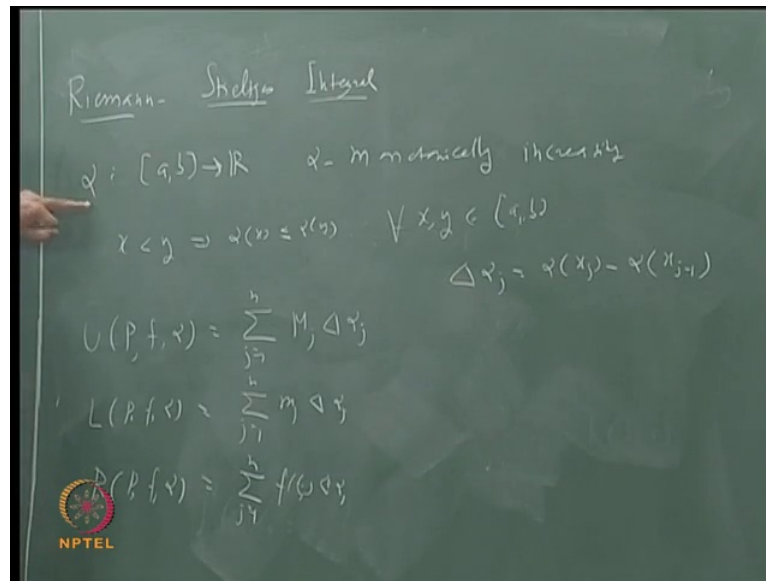 Riemann- Stieltjes Integral
α : [a,b] → ℝ α - monotonically increasing
x < y ⇒ α(x) ≤ α(y) ∀ x, y ∈ [a,b]
Δαj = α(xj) - α(xj-1)
U(P, f, α) = ∑ j=1 n Mj Δαj
L(P, f, α) = ∑ j=1 n mj Δαj
R(P, f, α) = ∑ j=1 n f(tj) Δαj
NPTEL